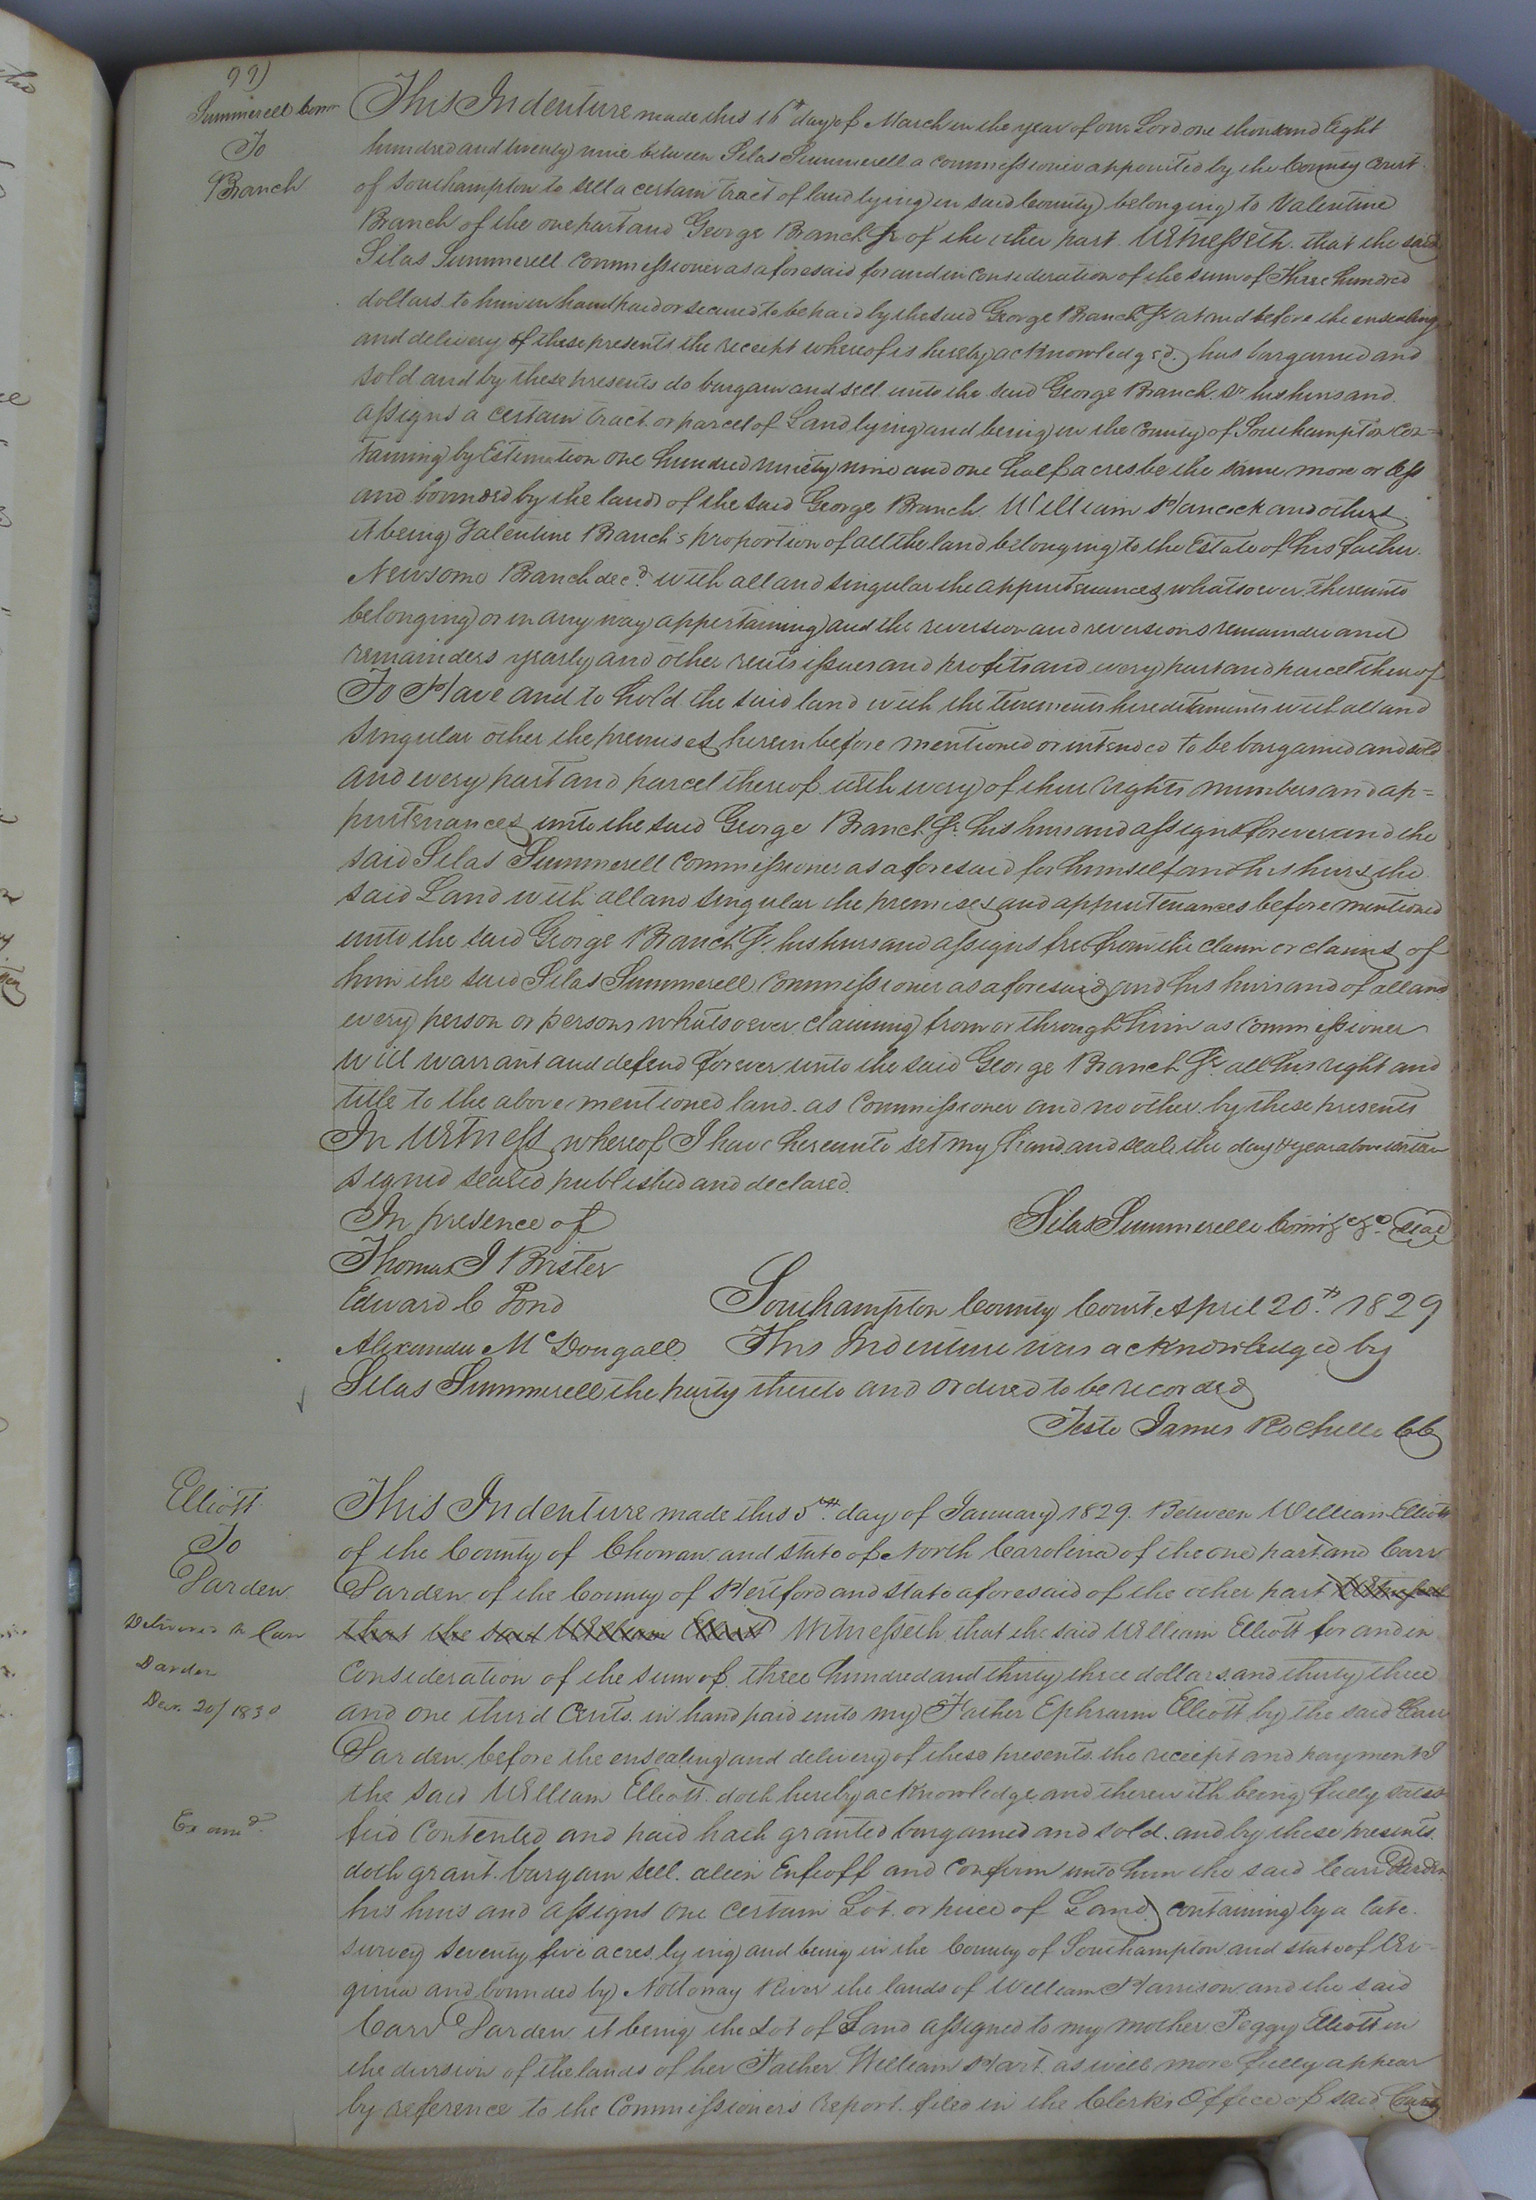 99)
Summerell Comr
To
Branch
This Indenture made this 16th day of March in the year of our Lord one thousand Eight
hundred and twenty nine between Silas Summerell a commissioner appointed by the County Court
of Southampton to sell a certain tract of land lying in said County belonging to Valentine
Branch of the one part and George Branch Jr of the other part Witnesseth that the said
Silas Summerell commissioner as aforesaid for and in consideration of the sum of Three hundred
dollars to him in hand paid or secured to be paid by the said George Branch Jr at and before the ensealing
and delivery of these presents the receipt whereof is hereby acknowledged has bargained and
sold and by these presents do bargain and sell unto the said George Branch Jr his heirs and
assigns a certain tract or parcel of Land lying and being in the County of Southampton con=
taining by Estimation one hundred ninety nine and one half acres be the same more or less
and bounded by the lands of the said George Branch William Hancock and others
it being Valentine Branch's proportion of all the land belonging to the Estate of his father
Newsome Branch decd with all and singular the appurtenances whatsoever thereunto
belonging or in any way appertaining and the reversion and reversions remainder and
remainders yearly and other rents issues and profits and every part and parcel thereof
To Have and to hold the said land with the tenements hereditaments with all and
singular other the premises herein before mentioned or intended to be bargained and sold
and every part and parcel thereof with every of their rights members and ap=
purtenances unto the said George Branch Jr his heirs and assigns forever and the
said Silas Summerell Commissioner as aforesaid for himself and his heirs the
said Land with all and singular the premises and appurtenances before mentioned
unto the said George Branch Jr his heirs and assigns free from the claim or claims of
him the said Silas Summerell Commissioner as aforesaid and his heirs and of all and
every person or persons whatsoever claiming from or through him as commissioner
will warrant and defend forever unto the said George Branch Jr all his right and
title to the above mentioned land as Commissioner and no other by these presents
In Witness whereof I have hereunto set my hand and seal the day & year above written
signed sealed published and declared
In presence of
Silas Summerell Comr &c &c Seal
Thomas J Brister
Edward C Pond
Southampton County Court April 20th 1829
Alexander McDougall This Indenture was acknowledged by
Silas Summerell the party thereto and ordered to be recorded
Teste James Rochelle CC
Elliott
To
Darden
Delivered to Carr
Darden
20/1830
Examd
This Indenture made this 5th day of January 1829 Between William Elliott
of the County of Chowan and state of North Carolina of the one part and Carr
Darden of the County of Hertford and state aforesaid of the other part Witnesseth
that the said William Elliott Witnesseth that the said William Elliott for and in
Consideration of the sum of three hundred and thirty three dollars and thirty three
and one third Cents in hand paid unto my Father Ephraim Elliott by the said Carr
Darden before the ensealing and delivery of these presents the receipt and payment I
the said William Elliott doth hereby acknowledge and therewith being fully satis
fied Contented and paid hath granted bargained and sold and by these presents
doth grant bargain sell alien Enfeoff and confirm unto him the said Carr Darden
his heirs and assigns one certain Lot or piece of Land containing by a late
survey seventy five acres lying and being in the County of Southampton and state of Vir=
ginia and bounded by Nottoway River the lands of William Harrison and the said
Carr Darden it being the Lot of Land assigned to my mother Peggy Elliott in
the division of the lands of her Father William Hart as will more fully appear
by reference to the Commissioners report filed in the Clerks Office of said County